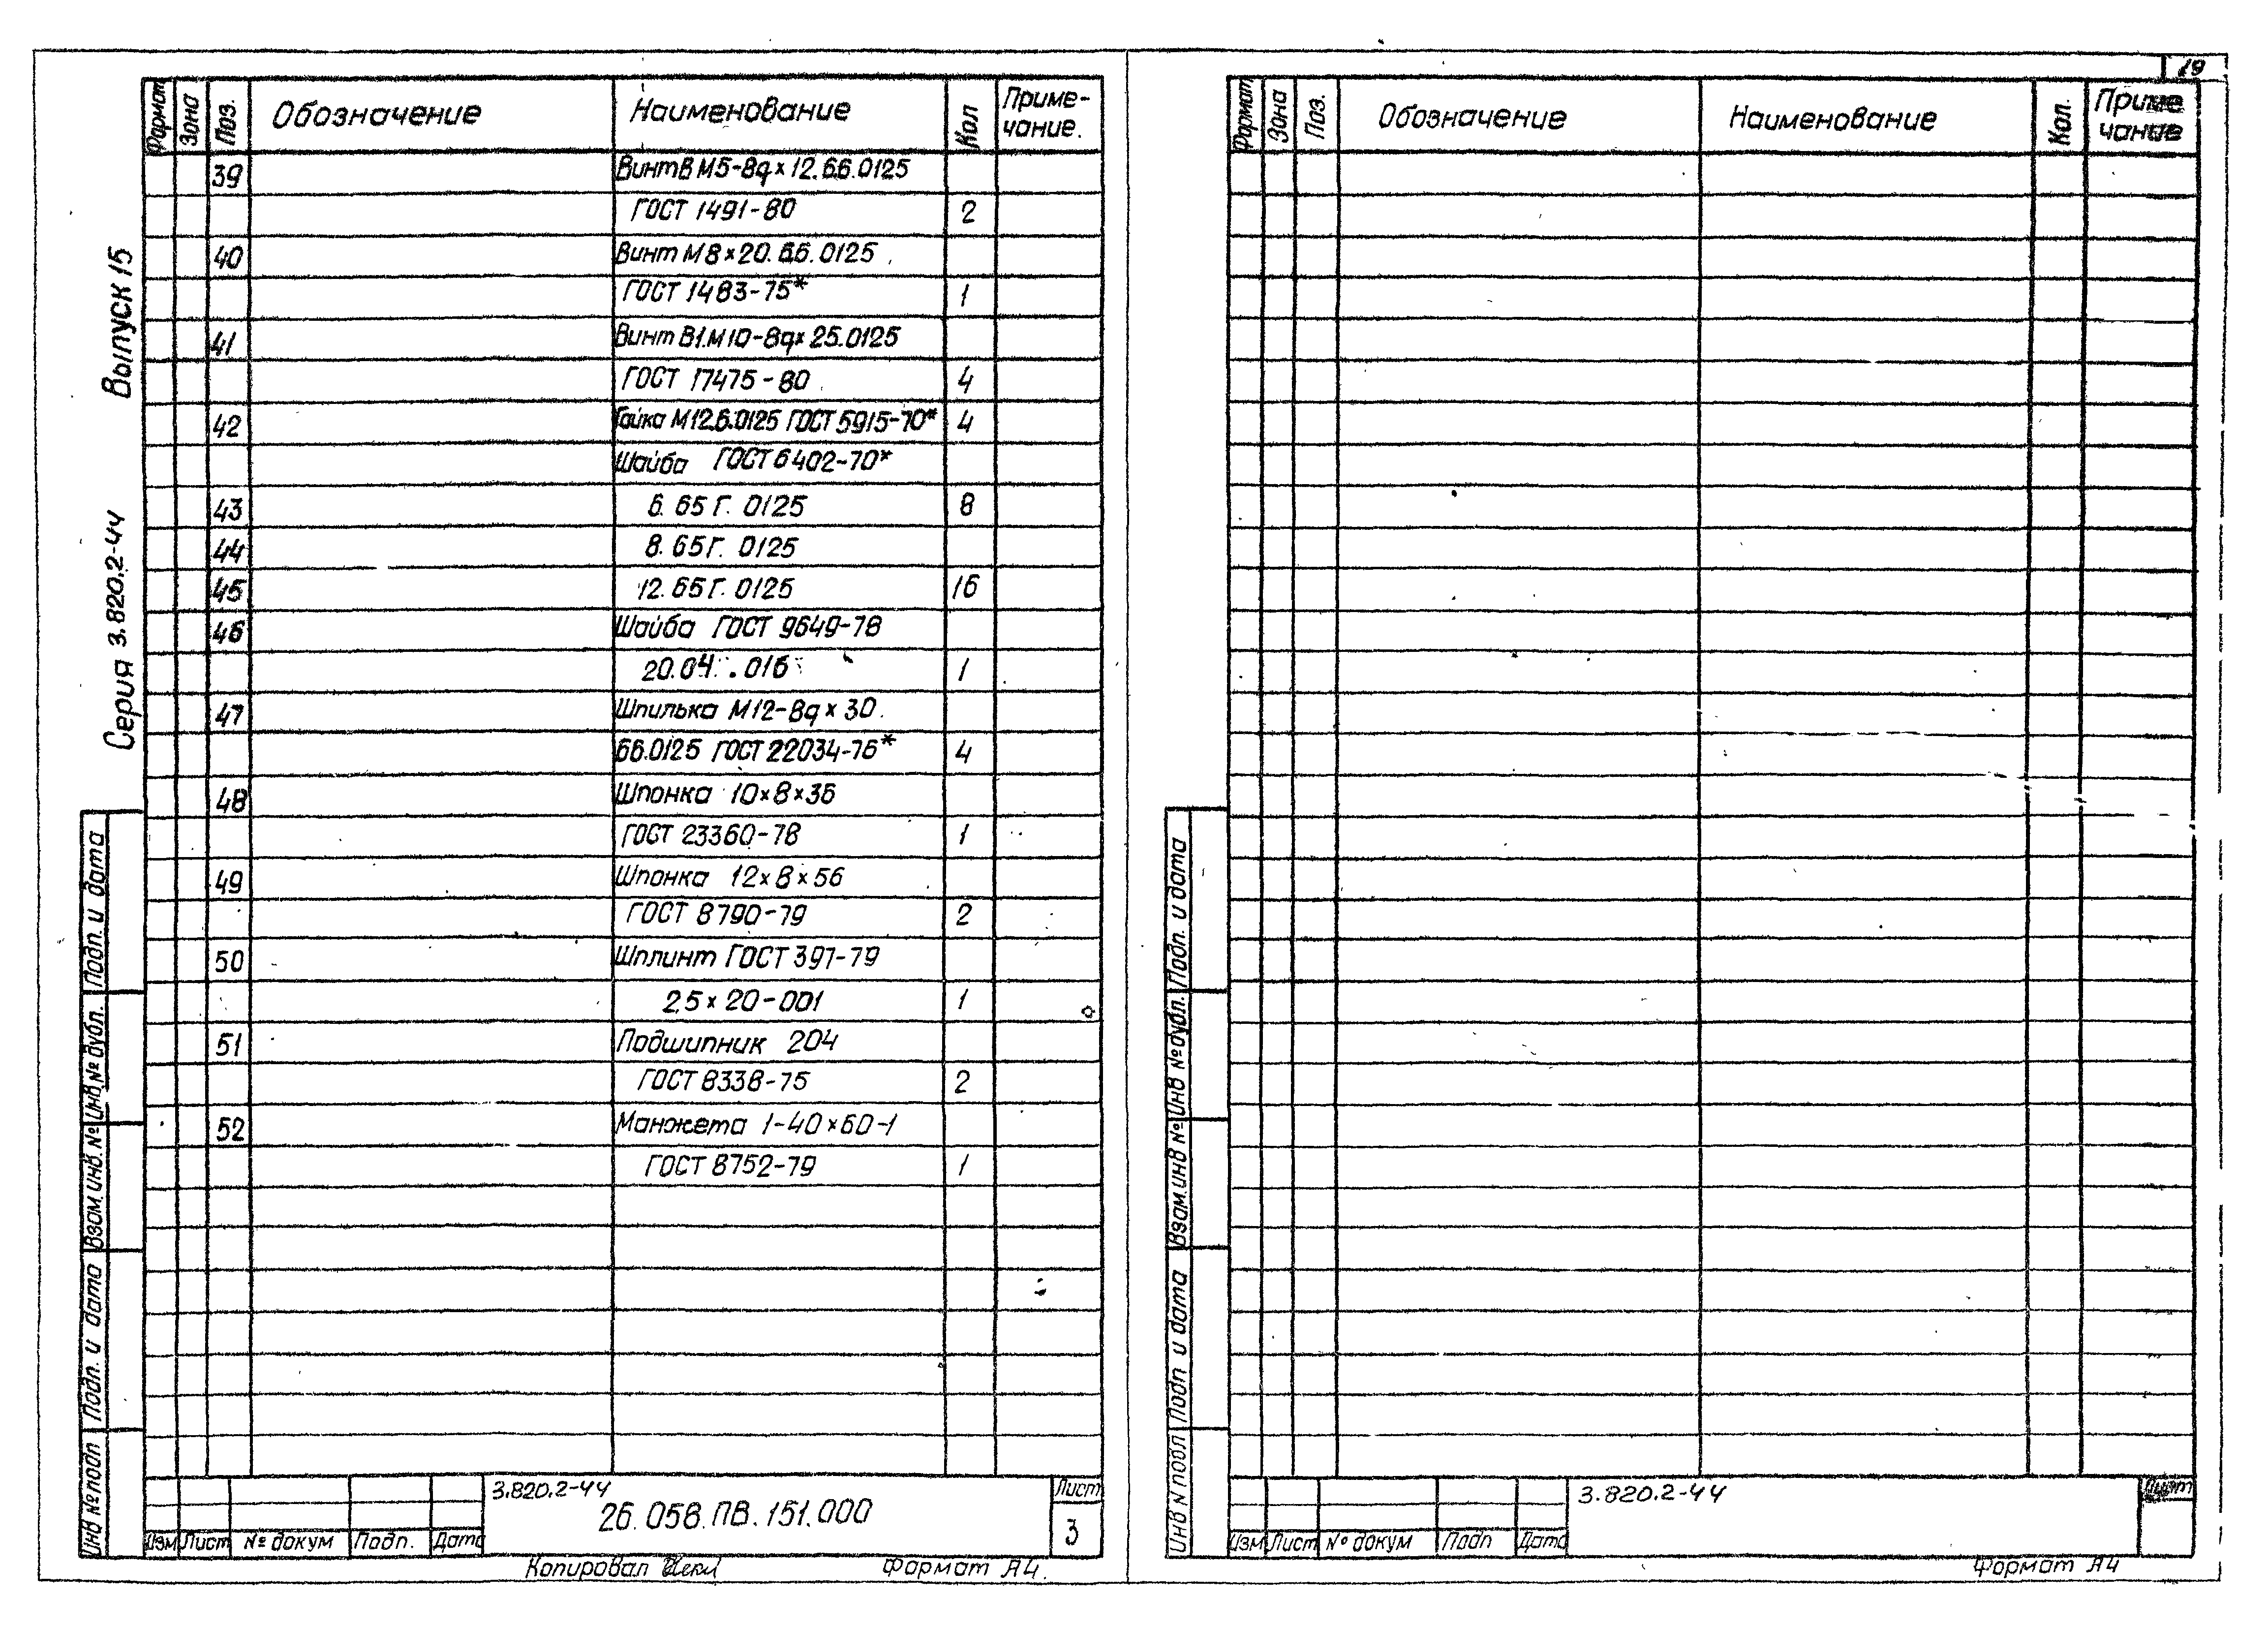 19
Формат Зона Поз. Обозначение Наименование Кол Приме-
чание.
39 Винт В М5-8q×12.66.0125
ГОСТ 1491-80 2
40 Винт М8×20.66.0125
ГОСТ 1483-75* 1
41 Винт В1.М10-8q×25.0125
ГОСТ 17475-80 4
42 Гайка М12.6.0125 ГОСТ 5915-70* 4
Шайба ГОСТ 6402-70*
43 6.65Г.0125 8
44 8.65Г.0125
45 12.65Г.0125 16
46 Шайба ГОСТ 9649-78
20.04.016 1
47 Шпилька М12-8q×30.
66.0125 ГОСТ 22034-76* 4
48 Шпонка 10×8×36
ГОСТ 23360-78 1
49 Шпонка 12×8×56
ГОСТ 8790-79 2
50 Шплинт ГОСТ 397-79
2,5×20-001 1
51 Подшипник 204
ГОСТ 8338-75 2
52 Манжета 1-40×60-1
ГОСТ 8752-79 1
Серия 3.820.2-44 Выпуск 15
Инв № подл Подп. и дата Взам. инв. № Инв. № дубл. Подп. и дата
3.820.2-44
26.058.ПВ.151.000
Лист
3
Изм Лист № докум Подп. Дата
Копировал
Формат А4.
Формат Зона Поз. Обозначение Наименование Кол. Приме
чание
Инв N подл Подп и дата Взам. инв № Инв № дубл. Подп. и дата
3.820.2-44
Лист
Изм Лист № докум Подп Дата
Формат А4